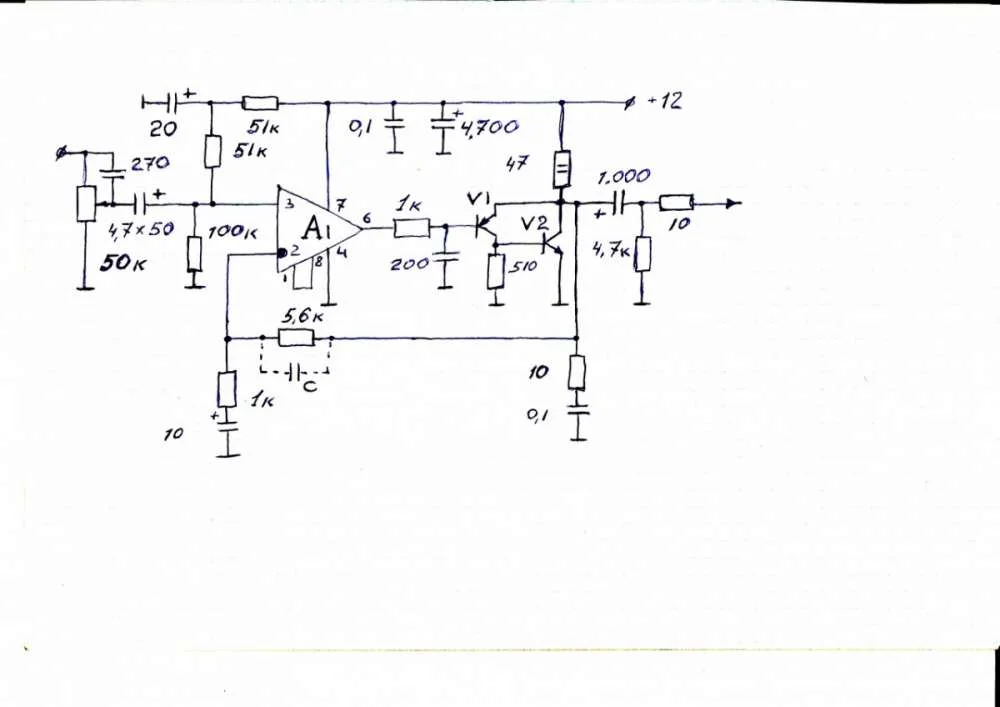 +
20
51к
51к
0,1
+
4,700
+12
270
+
4,7×50
50к
100к
3
7
A1
2
6
1
8
4
1к
200
V1
V2
510
47
1.000
+
4,7к
10
5,6к
C
1к
+
10
10
0,1